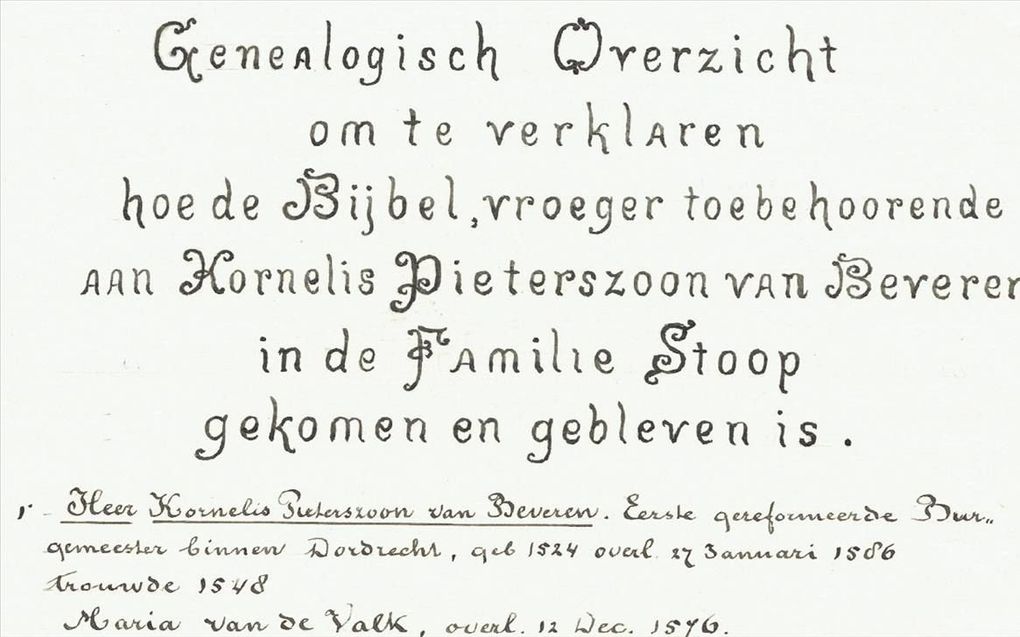 Genealogisch Overzicht
om te verklaren
hoe de Bijbel, vroeger toebehoorende
aan Kornelis Pieterszoon van Beveren
in de Familie Stoop
gekomen en gebleven is.
1. Heer Kornelis Pieterszoon van Beveren. Eerste gereformeerde Bur„
gemeester binnen Dordrecht, geb 1524 overl. 27 Januari 1586
trouwde 1548
Maria van de Valk, overl. 12 Dec. 1576.